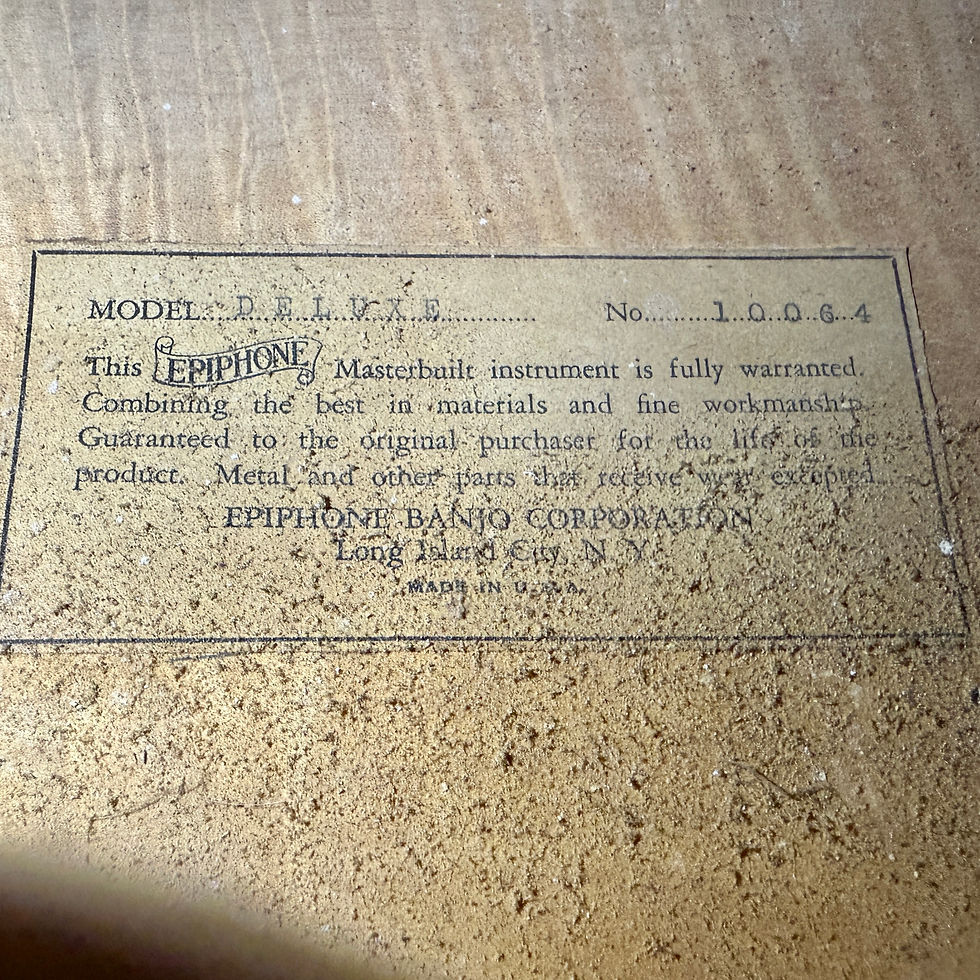 MODEL DELUXE No. 10064
This EPIPHONE Masterbuilt instrument is fully warranted.
Combining the best in materials and fine workmanship.
Guaranteed to the original purchaser for the life of the
product. Metal and other parts that receive wear excepted.
EPIPHONE BANJO CORPORATION
Long Island City, N. Y.
MADE IN U.S.A.